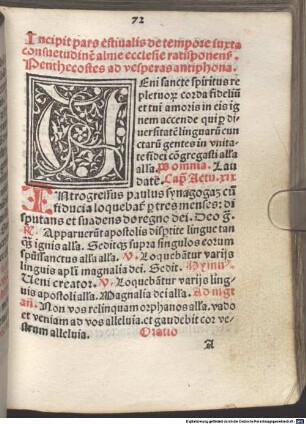 72
Incipit pars estiualis de tempore iuxta
consuetudinẽ alme ecclesie ratisponens̃.
Penthecostes ad vesperas antiphona.
Eni sancte spiritus re
ple tuorũ corda fideliũ
et tui amoris in eis ignem
accende qui ꝑ di
uersitatẽ linguarũ cun
ctarũ gentes in vnita
te fidei cõgregasti alla
alla. Psomnia. Lau
date. Cap̃ Actu. xix
INtrogressus paulus synagogaz cũ
fiducia loquebat̃ ꝑ tres menses: di
sputans et suadens de regno dei. Deo g̃.
R̃ Apparuerũt apostolis dispertite lingue tan
q̃ ignis alla. Seditqz supra singulos eorum
spũssanctus alla alla. V. Loquebãtur varijs
linguis apl̃i magnalia dei. Sedit. Hymnꝰ
Ueni creator. V. Loquebãtur varijs ling
uis apostoli alla. Magnalia dei alla. Ad mgt
añ. Non vos relinquam orphanos alla. vado
et veniam ad vos alleluia. et gaudebit cor ve
strum alleluia. Oratio
A